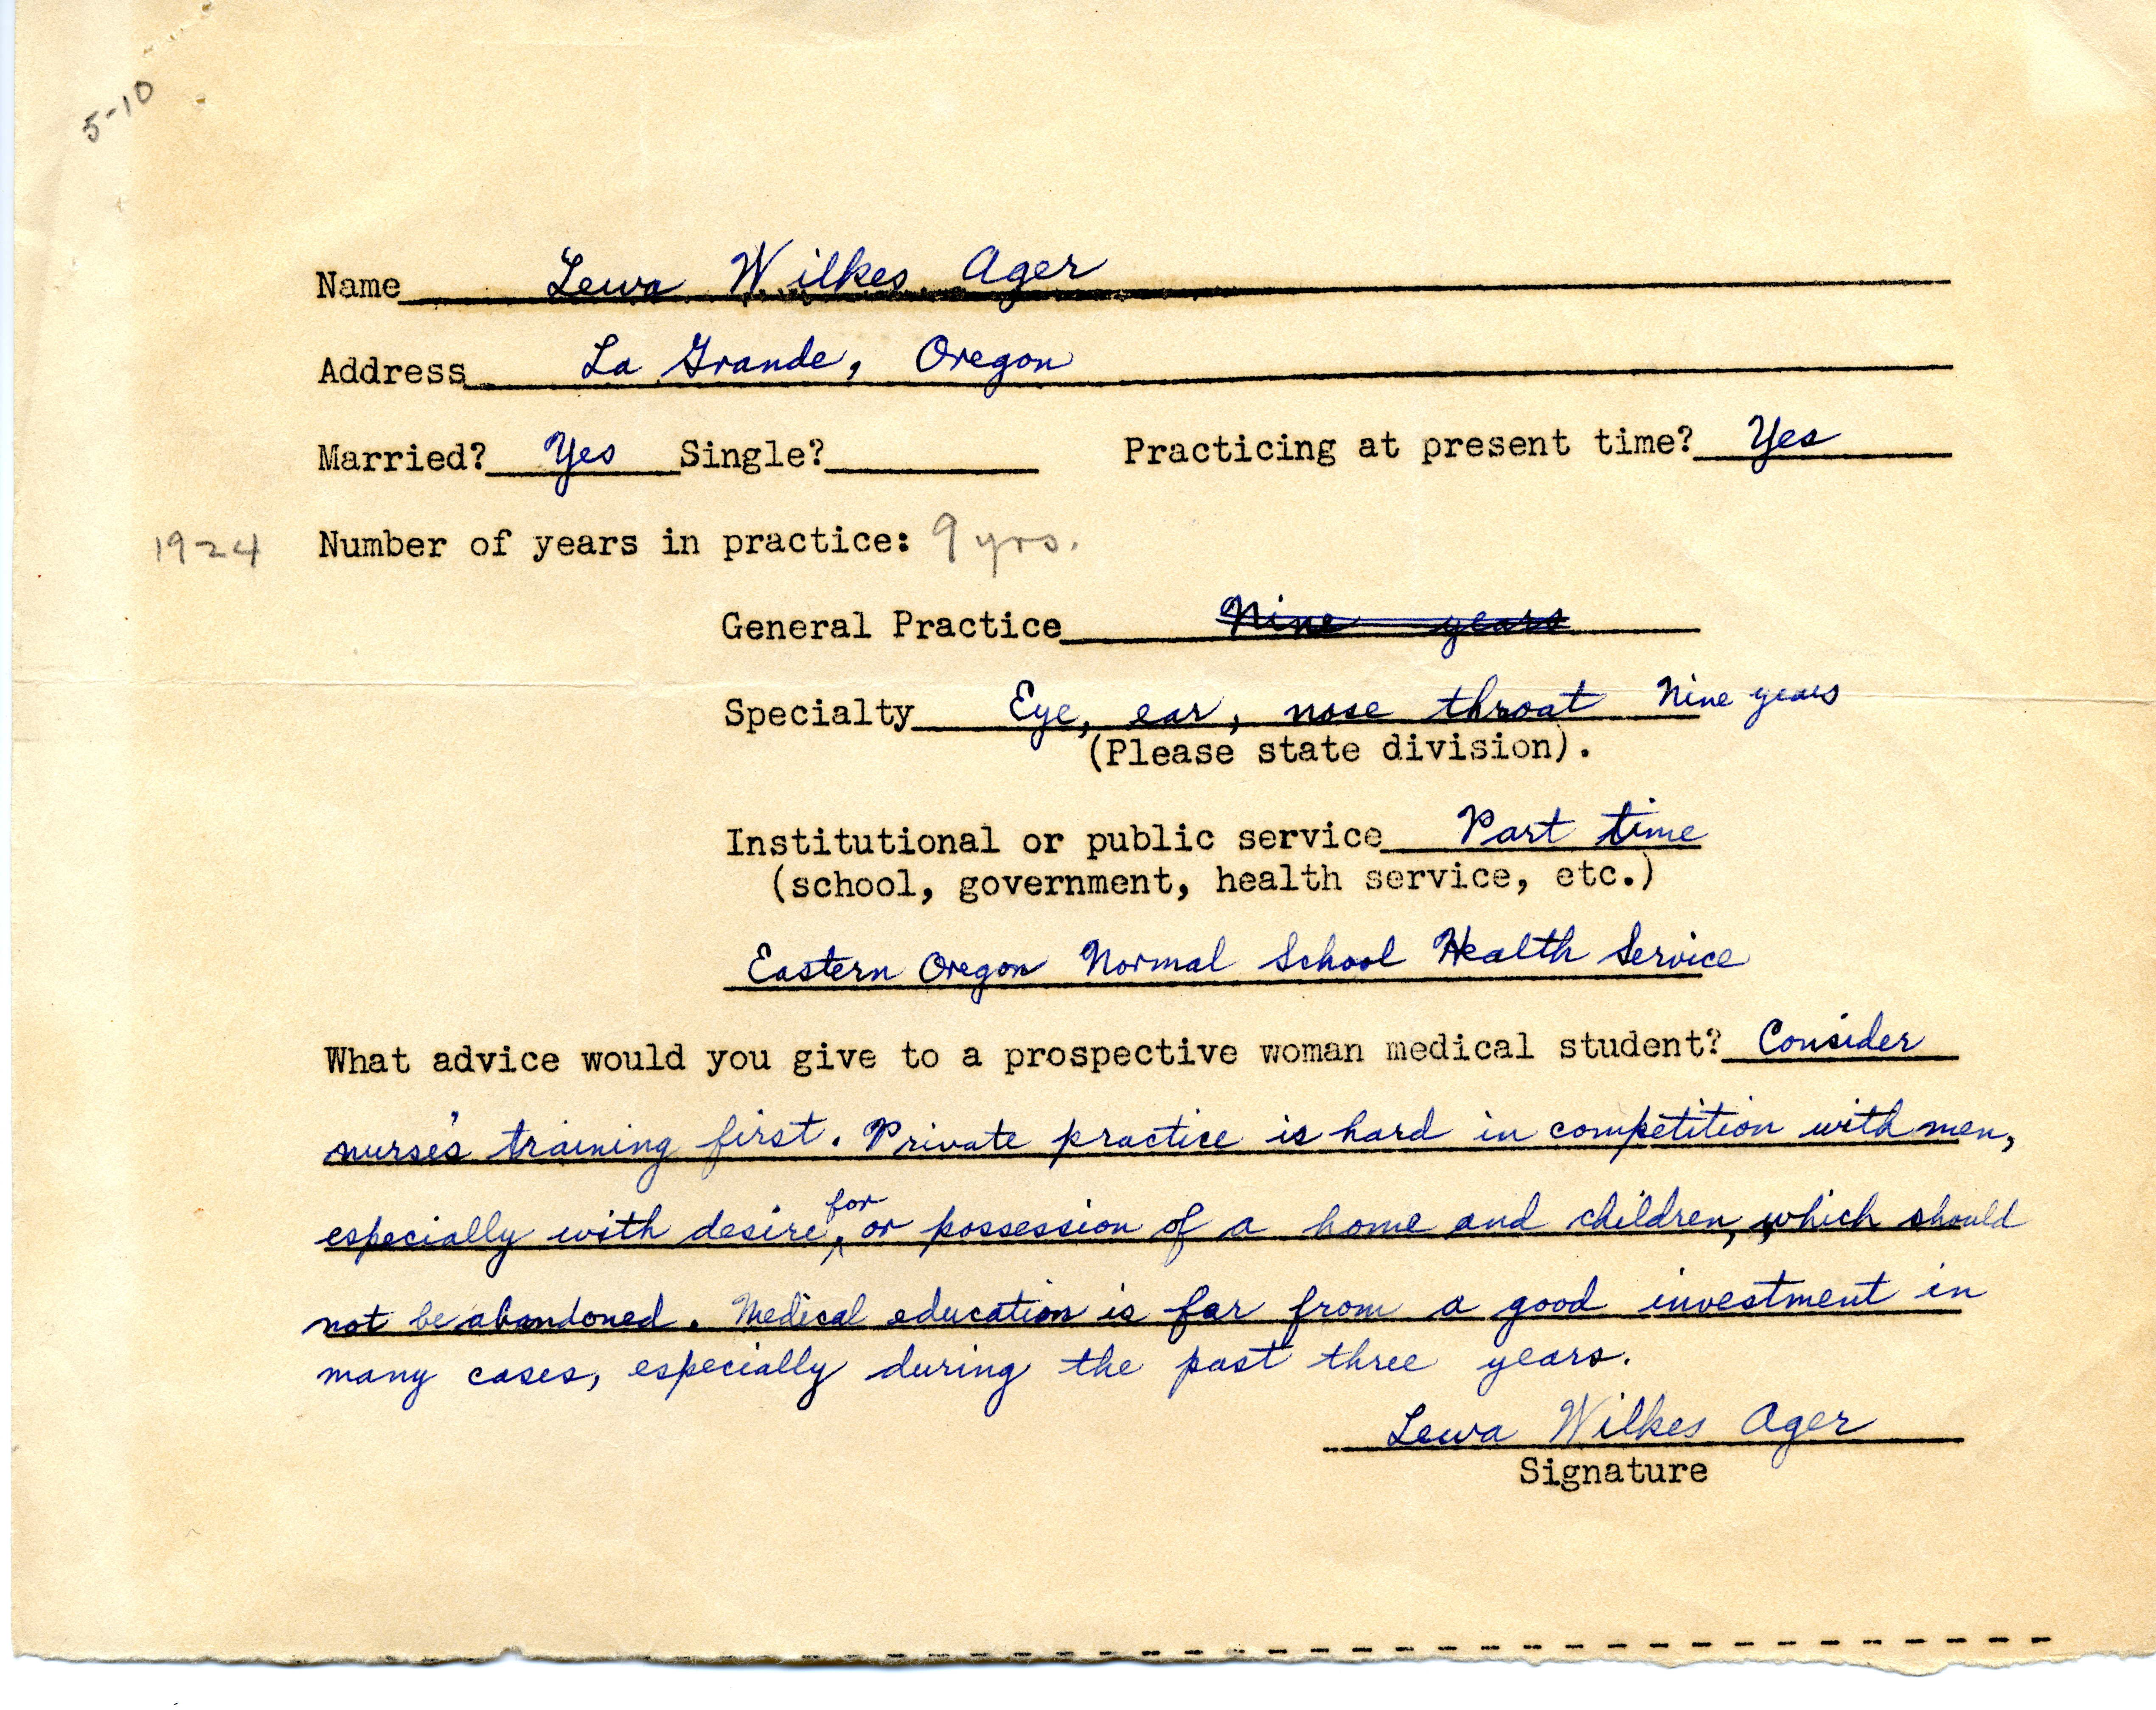 5-10
Name Lewa Wilkes Ager
Address La Grande, Oregon
Married? Yes Single? Practicing at present time? Yes
1924 Number of years in practice: 9 yrs.
General Practice Nine years
Specialty Eye, ear, nose throat Nine years
(Please state division).
Institutional or public service Part time
(school, government, health service, etc.)
Eastern Oregon Normal School Health Service
What advice would you give to a prospective woman medical student? Consider
nurse's training first. Private practice is hard in competition with men,
especially with desire for, or possession of a home and children, which should
not be abandoned. Medical education is far from a good investment in
many cases, especially during the past three years.
Lewa Wilkes Ager
Signature